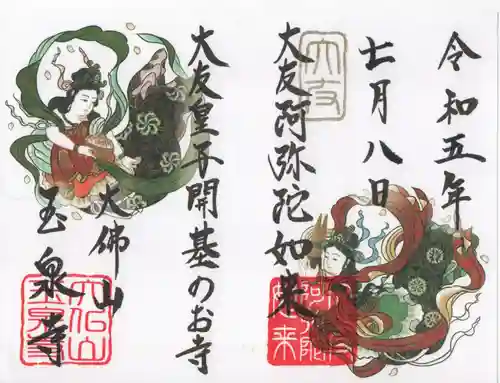 令和五年
七月八日
大友
大友阿弥陀如来
大友皇子開基のお寺
大佛山
玉泉寺